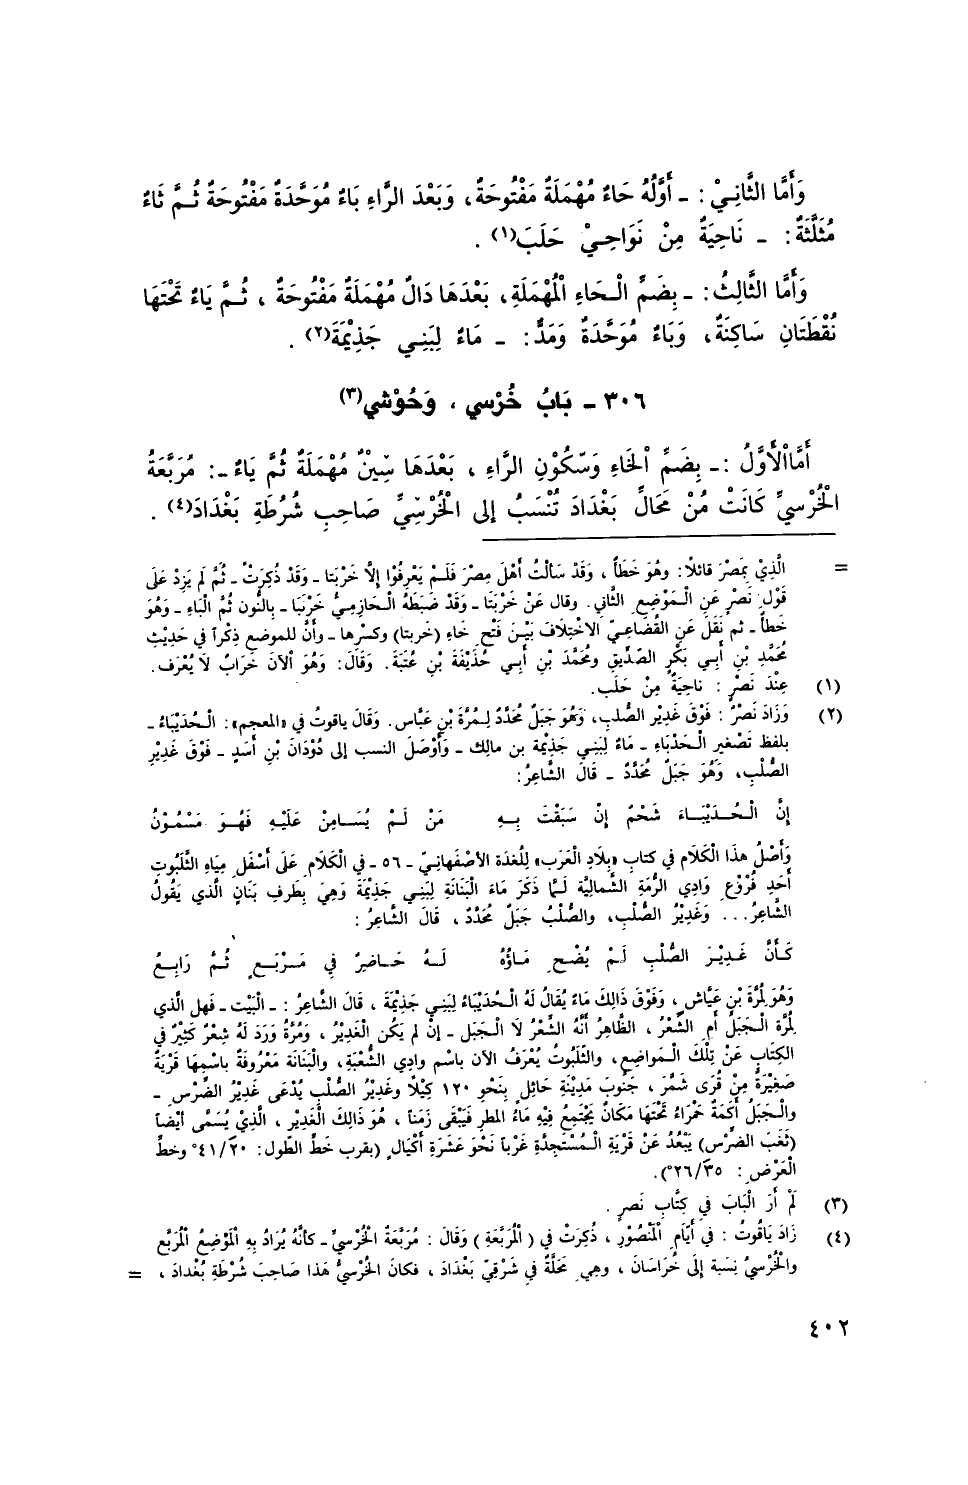 وَأَمَّا الثَّانِيْ : ـ أَوَّلُهُ حَاءٌ مُهْمَلَةٌ مَفْتُوحَةٌ، وَبَعْدَ الرَّاءِ بَاءٌ مُوَحَّدَةٌ مَفْتُوحَةٌ ثُمَّ ثَاءٌ
مُثَلَّثَةٌ: ـ نَاحِيَةٌ مِنْ نَوَاحِيْ حَلَبَ(١) .
وَأَمَّا الثَّالِثُ: ـ بِضَمِّ الْحَاءِ الْمُهْمَلَةِ، بَعْدَهَا دَالٌ مُهْمَلَةٌ مَفْتُوحَةٌ ، ثُمَّ يَاءٌ تَحْتَهَا
نُقْطَتَانِ سَاكِنَةٌ، وَبَاءٌ مُوَحَّدَةٌ وَمَدٌّ: ـ مَاءٌ لِبَنِي جَذِيْمَةَ(٢) .
٣٠٦ ـ بَابُ خُرْسي ، وَحُوْشي(٣)
أَمَّا الْأَوَّلُ :ـ بِضَمِّ الْخَاءِ وَسُكُوْنِ الرَّاءِ ، بَعْدَهَا سِيْنٌ مُهْمَلَةٌ ثُمَّ يَاءٌ ـ: مُرَبَّعَةُ
الْخُرْسيِّ كَانَتْ مُنْ مَحَالِّ بَغْدَادَ تُنْسَبُ إلى الْخُرْسِيِّ صَاحِبِ شُرُطَةِ بَغْدَادَ(٤) .
= الَّذِيْ بِمِصْرَ قائلاً: وهُوَ خَطَأٌ ، وَقَدْ سَأَلْتُ أَهْلَ مِصْرَ فَلَمْ يَعْرِفُوْا إِلاَّ خَرْبَتا ـ وَقَدْ ذُكِرَتْ ـ ثُمَّ لَم يَزِدْ عَلَى
قَوْلِ نَصْرٍ عَنِ الْمَوْضِعِ الثَّاني. وقال عَنْ خَرْبَتَا ـ وَقَدْ ضَبَطَهُ الْحَازِمِيُّ خَرْنَبَا ـ بِالنُّونِ ثُمَّ الْبَاءِ ـ وَهُوَ
خطأ ـ ثم نَقَلَ عَنِ القُضَاعِيِّ الاخْتِلَافَ بَيْنَ فَتْحِ خَاءِ (خربتا) وكسْرِها ـ وأنَّ للموضع ذِكْراً في حَدِيْثِ
مُحَمَّدِ بْنِ أَبِي بَكْرٍ الصِّدِّيقِ ومُحَمَّدَ بْنِ أَبِي حُذَيْفَةَ بْنِ عُتْبَةَ. وَقَالَ: وَهُوَ الآنَ خَرَابٌ لَا يُعْرَف.
(١) عِنْدَ نَصْرٍ : ناحِيَةٌ مِنْ حَلَب.
(٢) وَزَادَ نَصْرٌ : فَوْقَ غَدِيْرِ الصُّلْبِ، وَهُوَ جَبَلٌ مُحَدَّدٌ لِمُرَّةَ بْنِ عَبَّاسٍ. وَقَالَ ياقوتُ في «المعجم»: الْحُدَيْبَاءُ ـ
بلفظ تَصْغِيرِ الْحَدْبَاءِ ـ مَاءٌ لِبَنِي جَذِيْمةَ بن مالِك ـ وأَوْصَلَ النسب إلى دُوْدَانَ بْنِ أَسَدٍ ـ فَوْقَ غَدِيْرِ
الصُّلْبِ، وَهُوَ جَبَلٌ مُحَدَّدٌ ـ قالَ الشَّاعِرُ:
إِنَّ الْحُدَيْبَاءَ شَحْمٌ إِنْ سَبَقْتَ بِهِ    مَنْ لَمْ يُسَامِنْ عَلَيْهِ فَهُوَ مَسْمُوْنُ
وَأَصْلُ هذَا الْكَلَامِ في كتابِ «بِلَادِ الْعَرَبِ» لِلُغدَةِ الأصْفَهانِيّ ـ ٥٦ ـ في الْكَلَامِ عَلَى أَسْفَلِ مِيَاهِ الثَّلَبُوتِ
أَحَدِ فُرُوْعِ وَادِي الرُّمَةِ الشَّمالِيَّة لَمَّا ذَكَرَ مَاءَ الْبَنَانَةِ لِبَنِي جَذِيْمَةَ وَهِيَ بِطَرفِ بَنَانٍ الَّذي يَقُولُ
الشَّاعِرُ... وَغَدِيْرُ الصُّلْبِ، والصُّلْبُ جَبَلٌ مُحَدَّدٌ ، قَالَ الشَّاعِرُ :
كَأَنَّ غَدِيْرَ الصُّلْبِ لَمْ يُضْحِ مَاؤُهُ    لَهُ حَاضِرٌ فِي مَرْبَعٍ ثُمَّ رَابِعُ
وَهُوَ لِمُرَّةَ بْنِ عَيَّاش ، وَفَوْقَ ذَالِكَ مَاءٌ يُقَالُ لَهُ الْحُدَيْبَاءُ لِبَنِي جَذِيْمَةَ ، قَالَ الشَّاعِرُ : ـ الْبَيْت ـ فَهل الَّذي
لِمُرَّة الْجَبَلُ أَمِ الشِّعْرُ ، الظَّاهِرُ أَنَّهُ الشِّعْرُ لَا الْجَبَل ـ إِنْ لم يَكُن الْغَدِيْرُ ، وَمُرَّةُ وَرَدَ لَهُ شِعْرٌ كَثِيْرٌ في
الكِتَابِ عَنْ تِلْكَ الْمَواضِعِ، والثَّلَبُوتُ يُعْرَفُ الآن باسْمِ وادِي الشُّعْبَةِ، والْبَنَانَةُ مَعْرُوفَةٌ بِاسْمِهَا قَرْيَةٌ
صَغِيْرَةٌ مِنْ قُرَى شَمَّرَ ، جَنُوبَ مَدِيْنَةِ حَائِلٍ بِنَحْوِ ١٢٠ كِيْلاً وغَدِيْرُ الصُّلْبِ يُدْعَى غَدِيْرُ الضِّرْسِ ـ
والْجَبَلُ أَكَمَةٌ حَمْرَاءُ تَحْتَهَا مَكَانٌ يَجْتَمِعُ فِيْهِ مَاءُ المطرِ فَيَبْقَى زَمَناً ، هُوَ ذَالِكَ الْغَدِيْر ، الَّذِيْ يُسَمَّى أَيْضاً
(ثَغَبَ الضِّرْسِ) يَبْعُدُ عَنْ قَرْيَةِ الْمُسْتَجِدَّةِ غَرْباً نَحْوَ عَشَرَةِ أَكْيَالٍ (بقرب خَطِّ الطُّول: ٢٠َ/٤١° وخطِّ
الْعَرْضِ : ٣٥َ/٢٦°).
(٣) لَمْ أَرَ الْبَابَ في كِتَابِ نَصرٍ .
(٤) زَادَ يَاقُوتُ : في أَيَّامِ الْمَنْصُوْرِ ، ذُكِرَتْ في ( الْمُرَبَّعَةِ ) وَقَالَ : مُرَبَّعَةُ الْخُرْسِيِّ ـ كأنَّهُ يُرَادُ بِهِ الْمَوْضِعُ الْمُرَبَّع
والْخُرْسيُّ نِسَبة إِلَى خُرَاسَانَ ، وهِي مَحَلَّةٌ في شَرْقِيِّ بَغْدَادَ ، فكان الخُرْسيُّ هَذا صَاحِبَ شُرْطَةِ بُغْدادَ ، =
٤٠٢